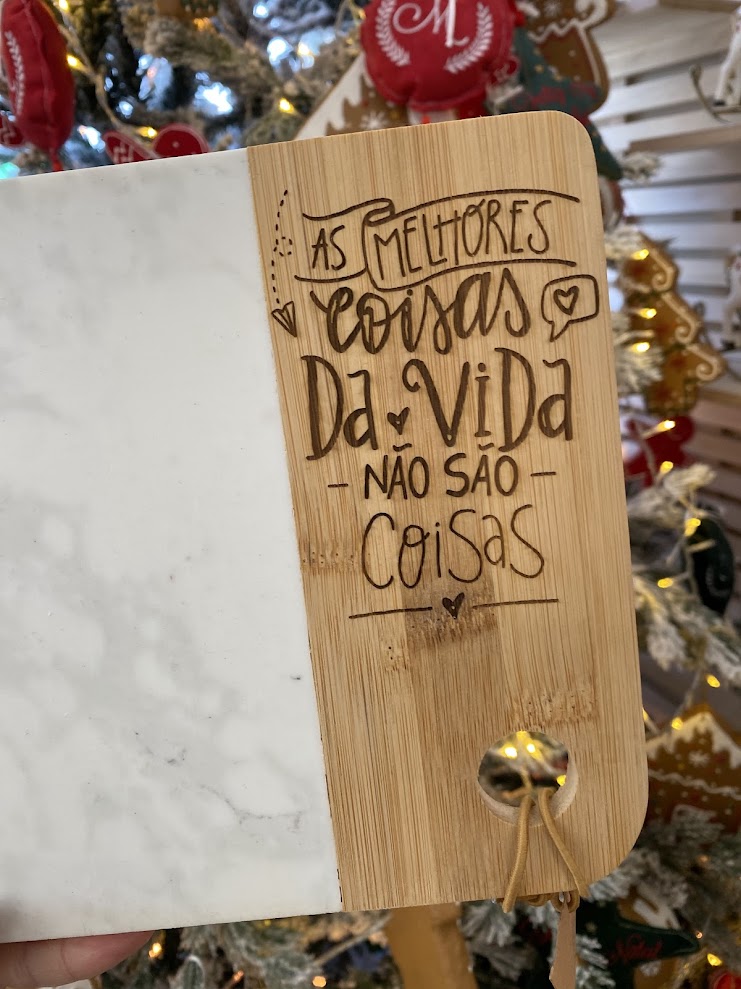 M
AS MELHORES
coisas
Da ViDa
- NÃO SÃO -
COiSaS
Natal